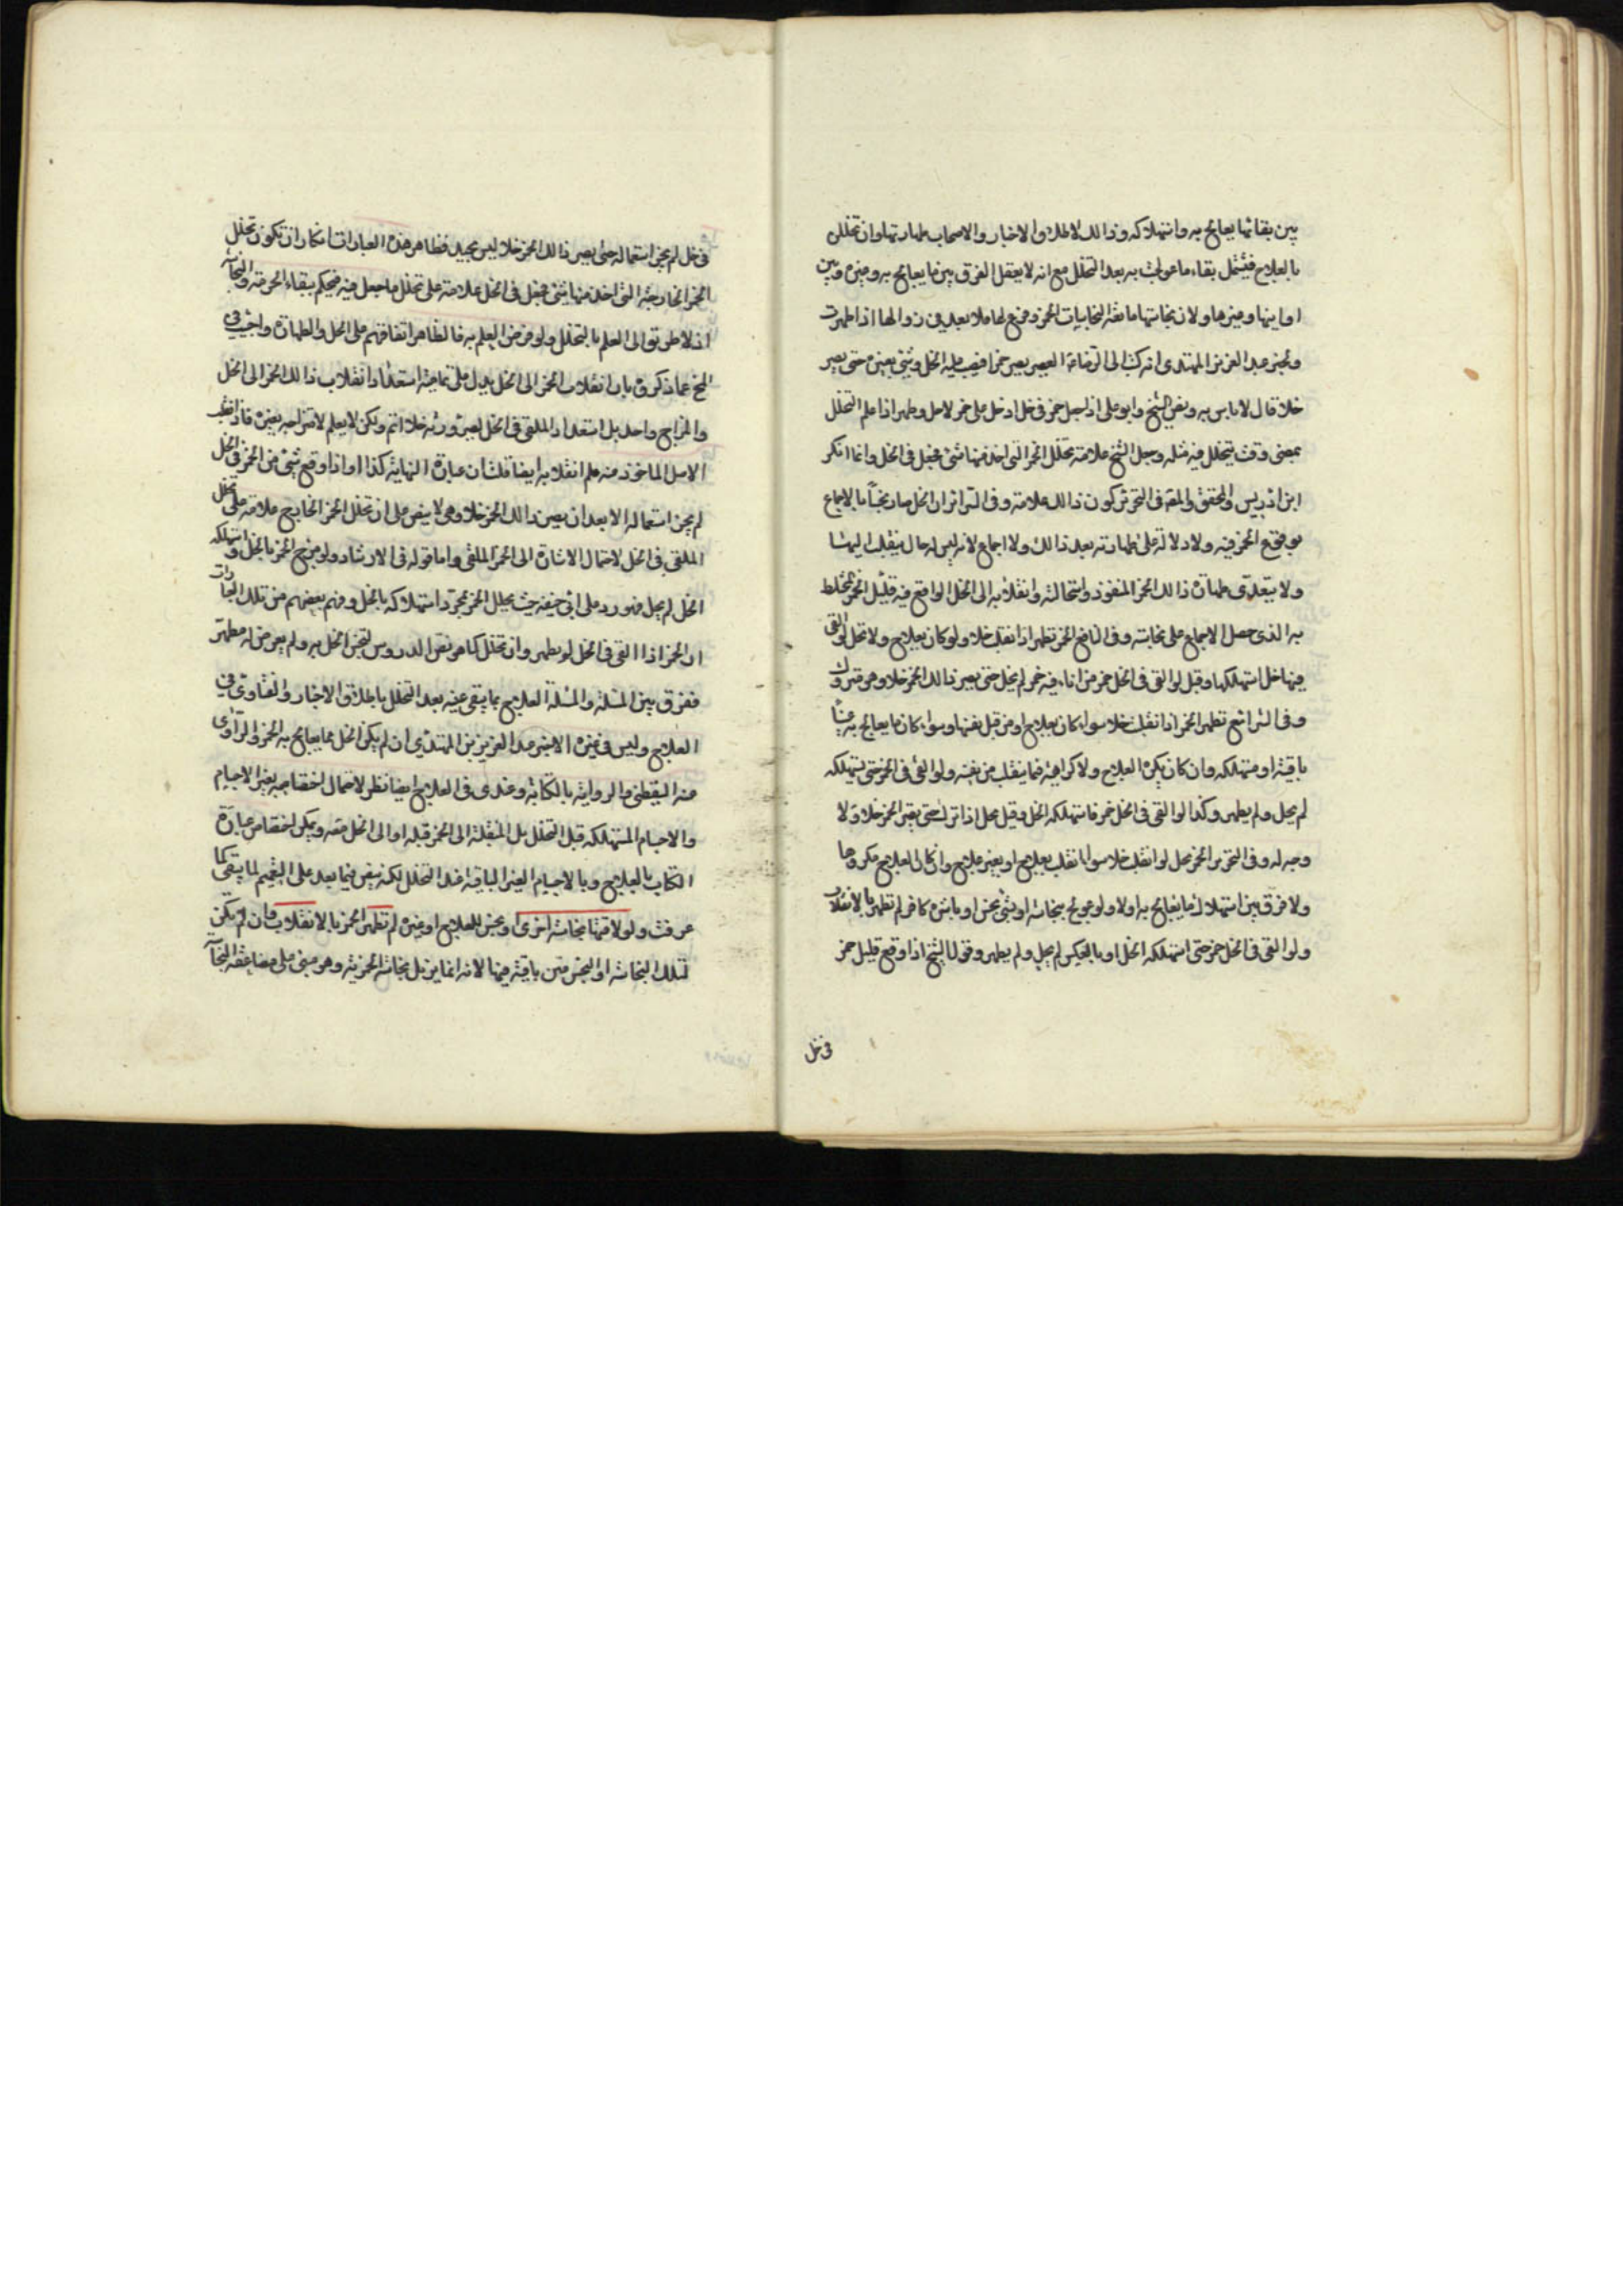 بين بقائها يعالج به وانتهلاكه وذالك لاطلاق الاخبار والاصحاب طهارتها وان تخلل
بالعلاج فيشمل بقاء ما عولجت به بعد التخلل مع انه لا يعقل الفرق بين ما يعالج به وغيره وبين
اوانيها وغيرها ولان نجاستها مانعة النجاسات الخمر
ولخبر عبد العزيز المهتدى انه كتب الى الرضا ع العصير يصير خمرا فيصب عليه الخل وشئ يغيره حتى يصير
خلا قال لا باس به وبعض الشيخ وابو على اذا جعل خمر فى خل ادخل على خمر لاحل وطهر اذا علم التخلل
بمضى وقت يتخلل فيه مثله وجعل الشيخ علامته تخلل الخمر التى اخذ منها شئ فجعل فى الخل وانما انكر
ابن ادريس والمحقق والمقه فى التحرير كون ذالك علامة وفى السرائر ان الخل صار نجسا بالاجماع
بوقوع الخمر فيه ولا دلالة على طهارته بعد ذالك ولا اجماع لانه ليس له حال ينقلب اليها
ولا يتعدى طهارة ذالك الخمر المنفرد واستحالته وانقلابه الى الخل الواقع فيه قليل الخمر المختلط
به الذى حصل الاجماع على نجاسته وفى النافع الخمر تطهر اذا انقلب خلا ولو كان بعلاج ولا تحل لو القى
فيها خل استهلكها وقيل لو القى فى الخل خمر من اناء فيه خمر لم يحل حتى يصير ذالك الخمر خلا وهو متروك
وفى الشرائع تطهر الخمر اذا انقلبت خلا سواء كان بعلاج او من قبل نفسها وسواء كان ما يعالج به عينا
باقية او مستهلكه وان كان يكره العلاج ولا كراهية فيما ينقلب من نفسه ولو القى فى الخمر خل يستهلكه
لم يحل ولم يطهر وكذا لو القى فى الخل خمر فاستهلكه الخل وقيل يحل اذا ترك حتى يصير الخمر خلا ولا
وجه له وفى التحرير الخمر يحل لو انقلب خلا سواء انقلب بعلاج او بغير علاج وان كان العلاج مكروها
ولا فرق بين استهلاك ما يعالج به اولا ولو عولج بنجاسة او بشئ نجس او باشره كافر لم تطهر بالانقلاب
ولو القى فى الخل خمر حتى استهلكه الخل او بالعكس لم يحل ولم يطهر وقول الشيخ اذا وقع قليل خمر
فى خل
فى خل لم يجز استعماله حتى يصير ذالك الخمر خلا ليس بجيد فظاهر هذه العبارات انكار ان تكون تخلل
الخمر الخارجة التى اخذ منها شئ فجعل فى الخل علامة على تخلل ما جعل فيه فيحكم ببقاء الحرمة والنجاسة
اذ لا طريق الى العلم بالتخلل ولو فرض العلم به فالظاهر اتفاقهم على الحل والطهارة واجيب فى
عما ذكروه بان انقلاب الخمر الى الخل يدل على تمامية استعداد انقلاب ذالك الخمر الى الخل
والمزاج واحد بل استعداد الملقى فى الخل لصيرورته خلا اتم ولكن لا يعلم لامتزاجه بغيره فاذا انقلب
الاصل الماخوذ منه علم انقلابه ايضا قلت ان عبارة النهاية كذا واذا وقع شئ من الخمر فى الخل
لم يجز استعماله الا بعد ان يصير ذالك الخمر خلا وهى لا ينص على ان تخلل الخمر الخارج علامة على تخلل
الملقى فى الخل لاحتمال الاشارة الى الخمر الملقى واما قوله فى الارشاد ولو مزج الخمر بالخل واستهلكه
الخل لم يحل فهو رد على ابى حنيفه حيث يحلل الخمر بمجرد استهلاكه بالخل وفهم بعضهم من تلك العبارات
ان الخمر اذا القى فى الخل لو يطهر وان تخلل كما هو نص الدروس لتنجس الخل به ولم يعرض له مطهر
ففرق بين المسئلة والمسئلة العلاج بما يبقى عينه بعد التخلل باطلاق الاخبار والفتاوى فى
العلاج وليس فى غيره الا خبر عبد العزيز بن المهتدى ان لم يكن الخل مما يعالج به الخمر والراوى
عنه اليقطنى والرواية بالكتابة وعندى فى العلاج ايضا نظر لاحتمال اختصاصه بغير الاجسام
والاجسام المستهلكه قبل التخلل بل المنقلبة الى الخمر قبله او الى الخل معه ويمكن اختصاص عبارة
الكتاب بالعلاج وبالاجسام الغير الباقية عند التخلل لكنه ينص فيما بعد على التعميم لما يبقى كما
عرفت ولو لاقتها نجاسة اخرى او نجس للعلاج او غيره لم تطهر الخمر بالانقلاب وان لم يكن
لتلك النجاسة او النجس عين باقية فيها لانه انما يزيل نجاسة الخمرية وهو مبنى على مضاعفة النجاسة